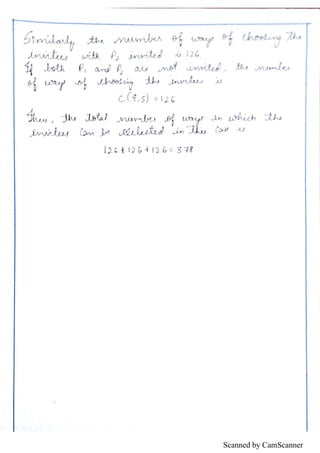 Similarly the number of ways of choosing the
invitees with P₂ invited is 126.
If both P₁ and P₂ are not invited, the number
of ways of choosing the invitees is
C(9,5) = 126
Thus, the total number of ways in which the
invitees can be selected in this case is
126 + 126 + 126 = 378
Scanned by CamScanner